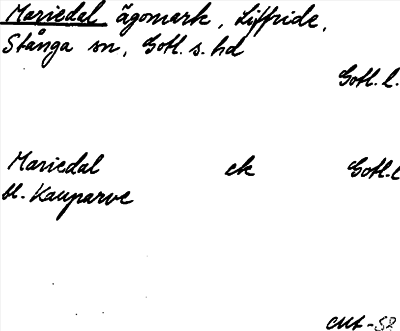 Mariedal ägomark, Liffride,
Stånga sn, Gotl. s. hd
Gotl. l.
Mariedal ek Gotl. l
bl. Kauparve